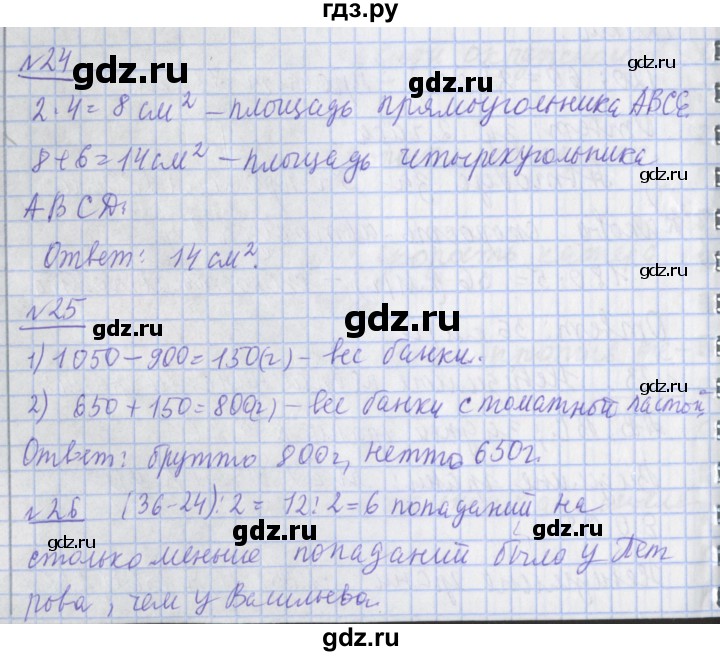 гдз.ру
№24
2·4=8 см² – площадь прямоугольника ABCE
8+6=14 см² – площадь четырехугольника
ABCD.
Ответ: 14 см².
№25
1) 1050-900=150(г) – вес банки.
2) 650+150=800(г) – вес банки с томатной пастой,
Ответ: брутто 800г, нетто 650г.
№26 (36-24):2=12:2=6 попаданий на
столько меньше попаданий было у Пет
рова, чем у Васильева.
gdz.ru
gdz.ru
gdz.ru
gdz.ru
gdz.ru
gdz.ru
gdz.ru
gdz.ru
gdz.ru
gdz.ru
gdz.ru
gdz.ru
gdz.ru
gdz.ru